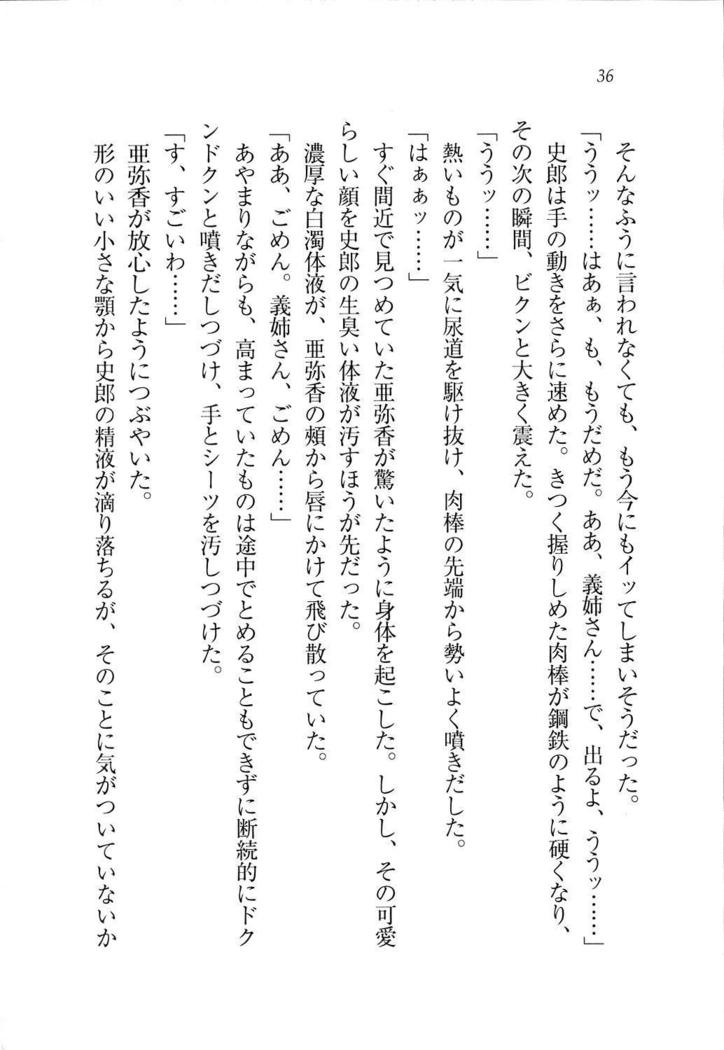 36
そんなふうに言われなくても、もう今にもイッてしまいそうだった。
「ううッ……はあぁ、も、もうだめだ。ああ、義姉さん……で、出るよ、ううッ……」
史郎は手の動きをさらに速めた。きつく握りしめた肉棒が鋼鉄のように硬くなり、
その次の瞬間、ビクンと大きく震えた。
「ううッ……」
熱いものが一気に尿道を駆け抜け、肉棒の先端から勢いよく噴きだした。
「はぁぁッ……」
すぐ間近で見つめていた亜弥香が驚いたように身体を起こした。しかし、その可愛
らしい顔を史郎の生臭い体液が汚すほうが先だった。
濃厚な白濁体液が、亜弥香の頰から唇にかけて飛び散っていた。
「ああ、ごめん。義姉さん、ごめん……」
あやまりながらも、高まっていたものは途中でとめることもできずに断続的にドク
ンドクンと噴きだしつづけ、手とシーツを汚しつづけた。
「す、すごいわ……」
亜弥香が放心したようにつぶやいた。
形のいい小さな顎から史郎の精液が滴り落ちるが、そのことに気がついていないか